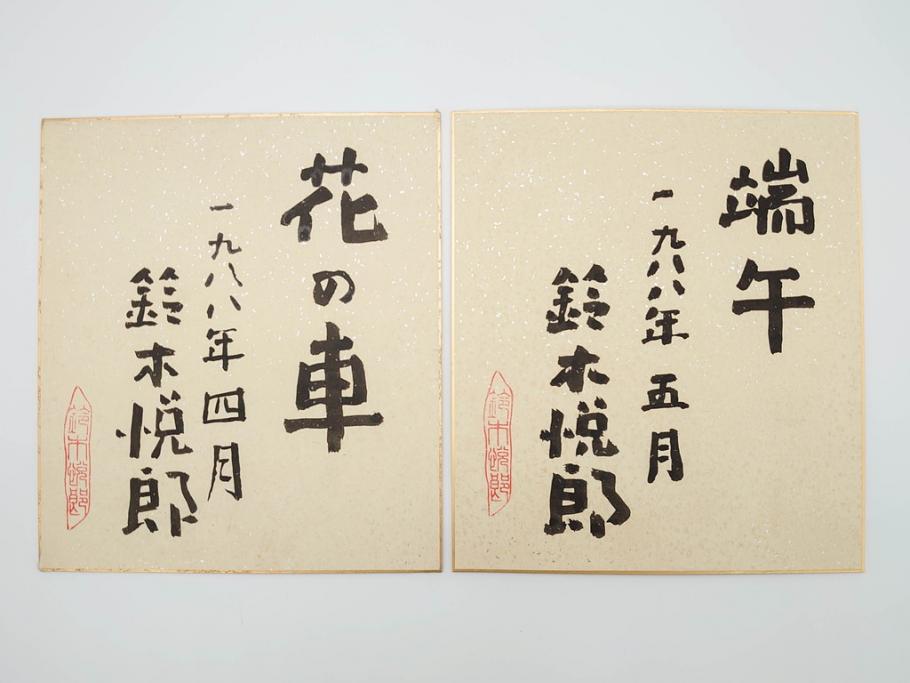 花の車
一九八八年 四月
鈴木悦郎
鈴木悦郎
端午
一九八八年 五月
鈴木悦郎
鈴木悦郎